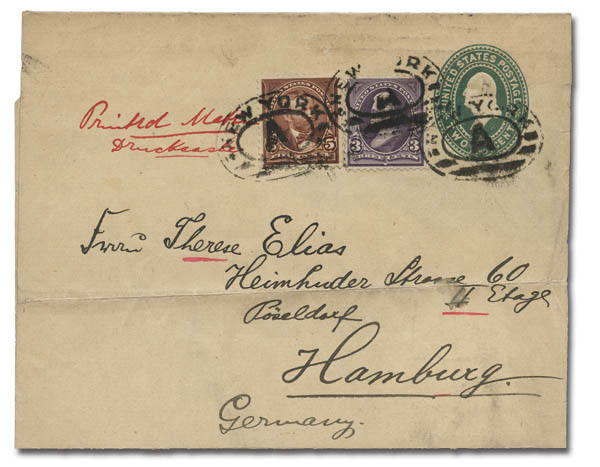 UNITED STATES POSTAGE
TWO CENTS
NEW YORK
A
5
NEW YORK
K
3 3
THREE CENTS
NEW YORK
A
Printed Matter
Drucksache
Frau Therese Elias
Heimhuder Strasse 60
II Etage
Pöseldorf
Hamburg.
Germany.